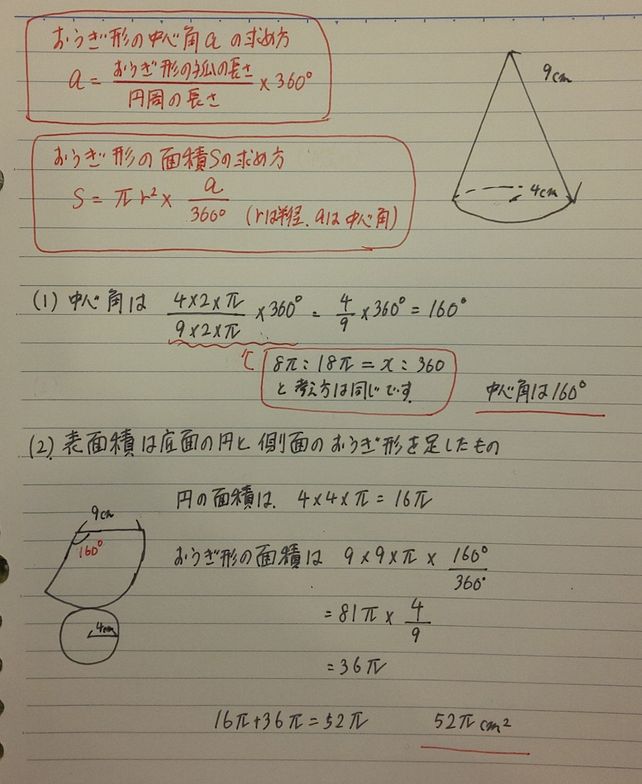 おうぎ形の中心角aの求め方
a = おうぎ形の弧の長さ/円周の長さ × 360°
9cm
おうぎ形の面積Sの求め方
S = πr² × a/360° (rは半径、aは中心角)
4cm
(1) 中心角は 4×2×π/9×2×π ×360° = 4/9 ×360° = 160°
8π:18π = x:360
と考え方は同じです。
中心角は160°
(2) 表面積は底面の円と側面のおうぎ形を足したもの
円の面積は、4×4×π = 16π
9cm
160°
おうぎ形の面積は 9×9×π× 160°/360°
= 81π× 4/9
4cm
= 36π
16π+36π = 52π
52π cm²